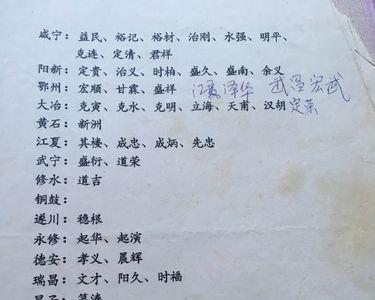 咸宁：益民、裕记、裕材、治刚、水强、明平、
克连、定清、君祥
阳新：定贵、治义、时柏、盛久、盛南、余义
鄂州：宏顺、甘霖、盛祥 江夏泽华 武昌宏武
大冶：克寅、克水、克明、立海、天甫、汉胡 定荣
黄石：新洲
江夏：其楼、成忠、成炳、先忠
武宁：盛衍、道荣
修水：道吉
铜鼓：
遂川：稳根
永修：起华、起演
德安：孝义、晨辉
瑞昌：文才、阳久、时福